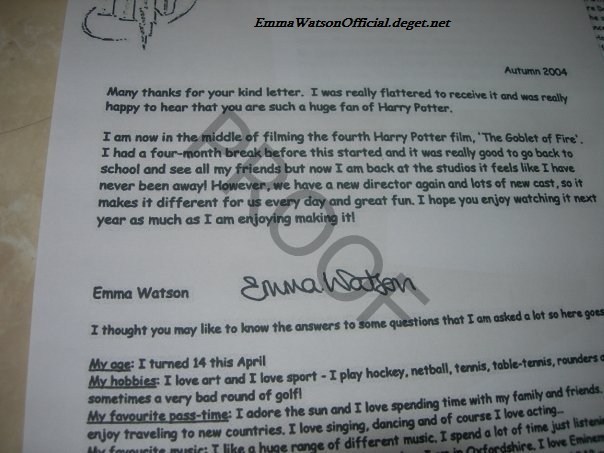 EmmaWatsonOfficial.deget.net
Autumn 2004
Many thanks for your kind letter. I was really flattered to receive it and was really
happy to hear that you are such a huge fan of Harry Potter.
I am now in the middle of filming the fourth Harry Potter film, 'The Goblet of Fire'.
I had a four-month break before this started and it was really good to go back to
school and see all my friends but now I am back at the studios it feels like I have
never been away! However, we have a new director again and lots of new cast, so it
makes it different for us every day and great fun. I hope you enjoy watching it next
year as much as I am enjoying making it!
PROOF
Emma Watson Emma Watson
I thought you may like to know the answers to some questions that I am asked a lot so here goes
My age: I turned 14 this April
My hobbies: I love art and I love sport - I play hockey, netball, tennis, table-tennis, rounders
sometimes a very bad round of golf!
My favourite pass-time: I adore the sun and I love spending time with my family and friends.
enjoy traveling to new countries. I love singing, dancing and of course I love acting...
My favourite music: I like a huge range of different music. I spend a lot of time just
in Oxfordshire. I love Eminem